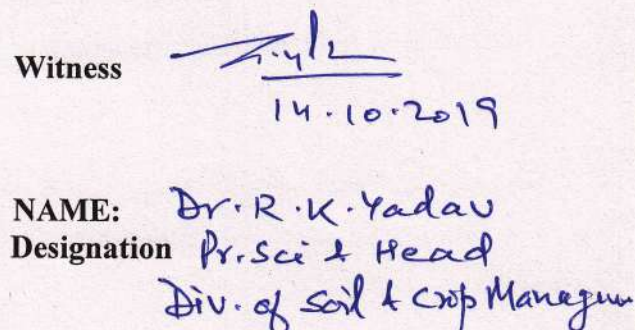 Witness
14.10.2019
NAME: Dr. R. K. Yadav
Designation Pr. Sci & Head
Div. of Soil & Crop Managem